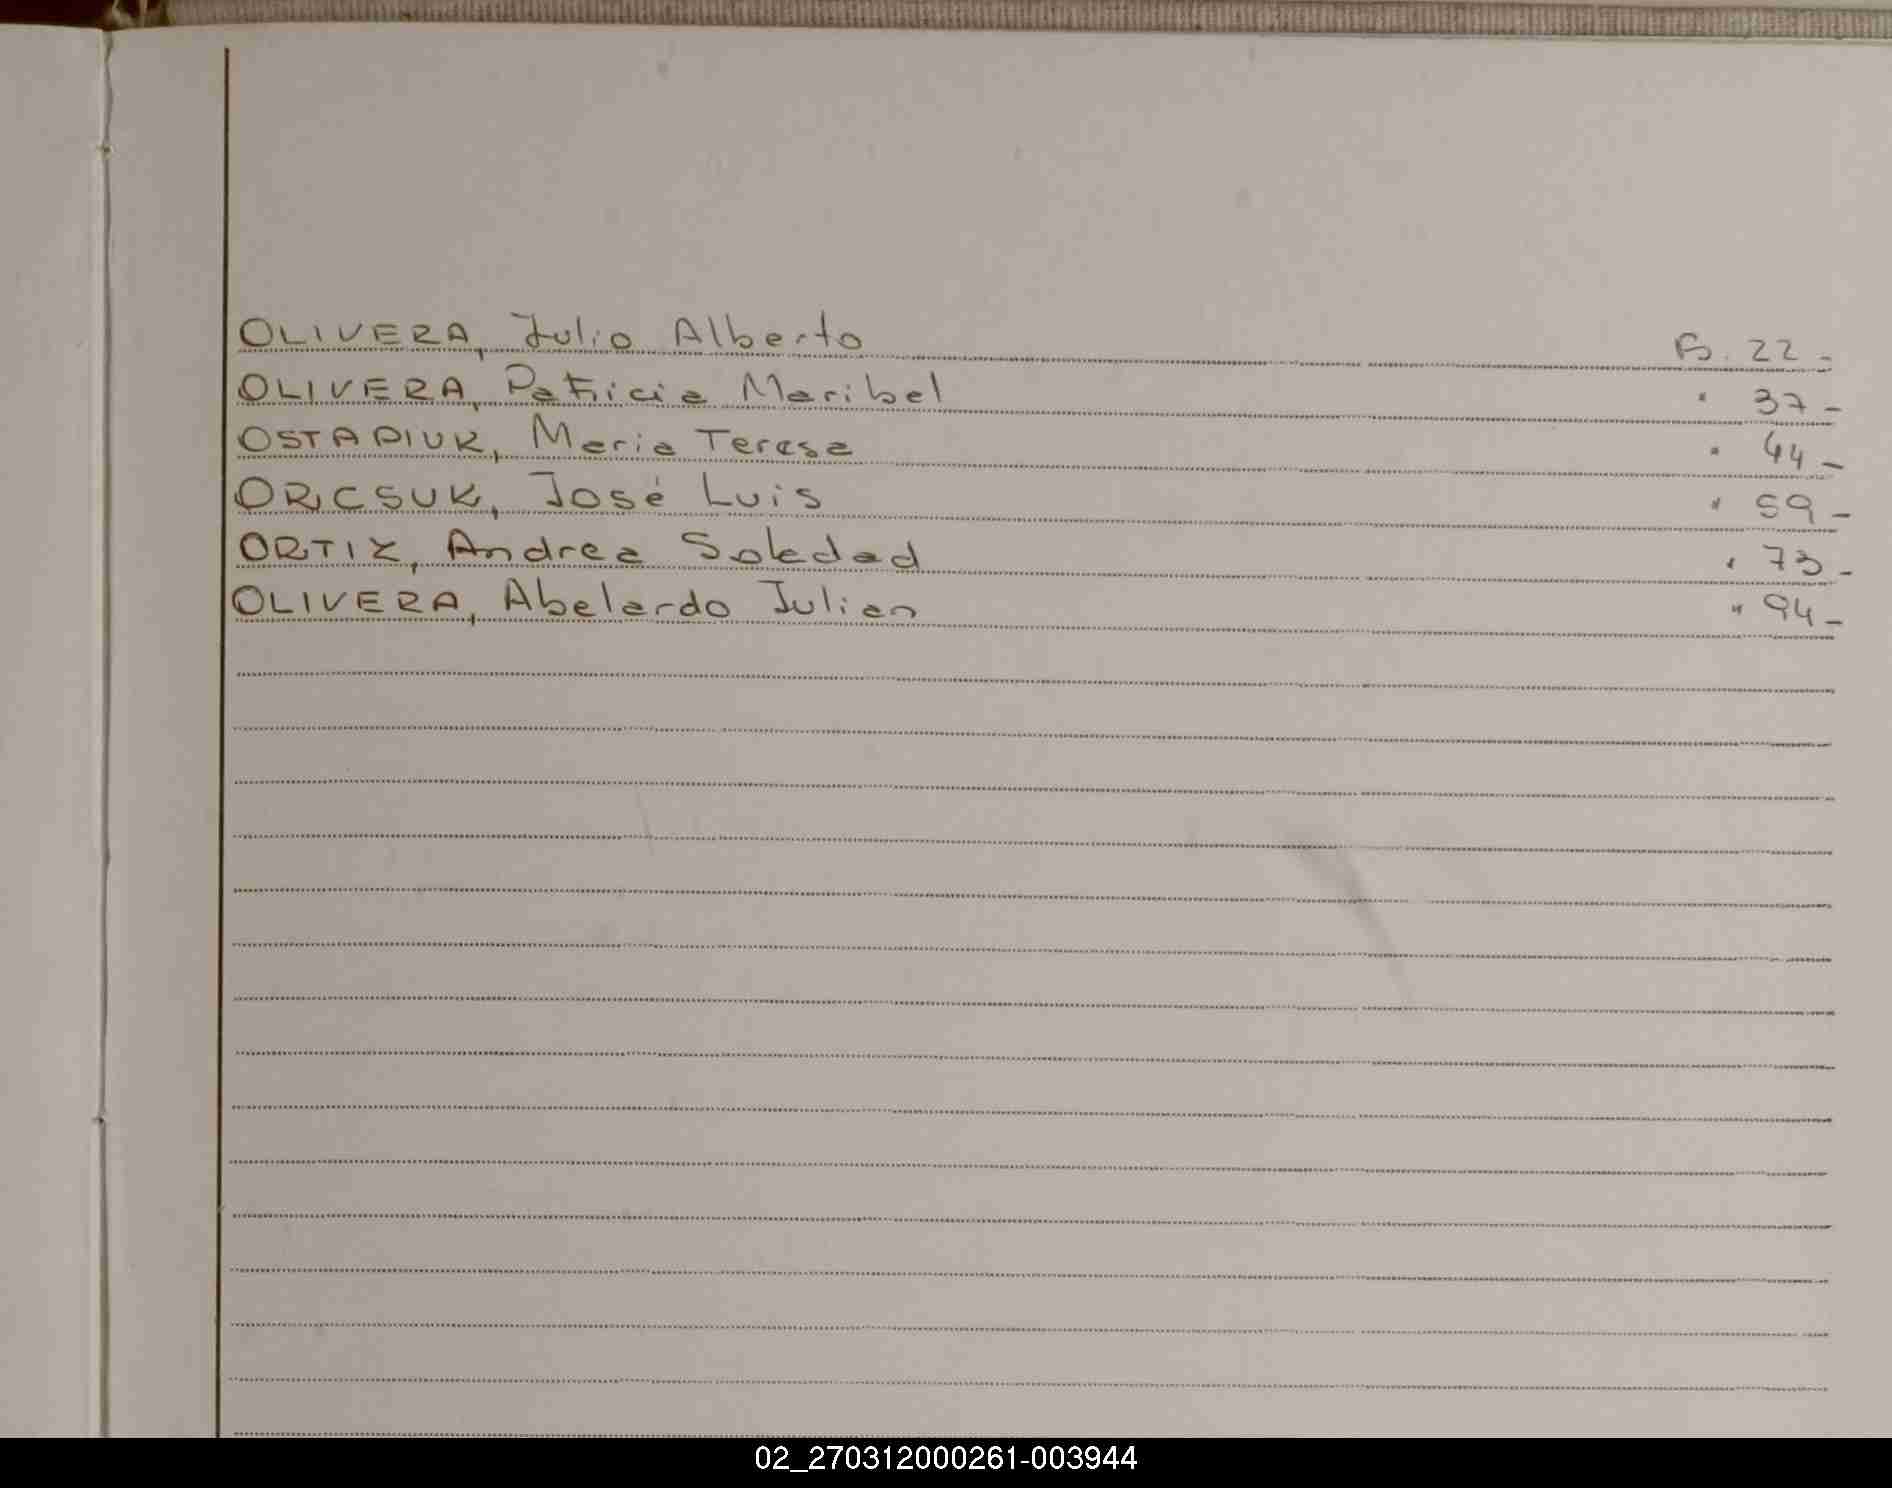 OLIVERA, Julio Alberto Fs. 22-
OLIVERA, Patricia Maribel " 37-
OSTAPIUK, Maria Teresa " 44-
ORCSUK, José Luis " 59-
ORTIZ, Andrea Soledad " 73-
OLIVERA, Abelardo Julian " 94-
02_270312000261-003944